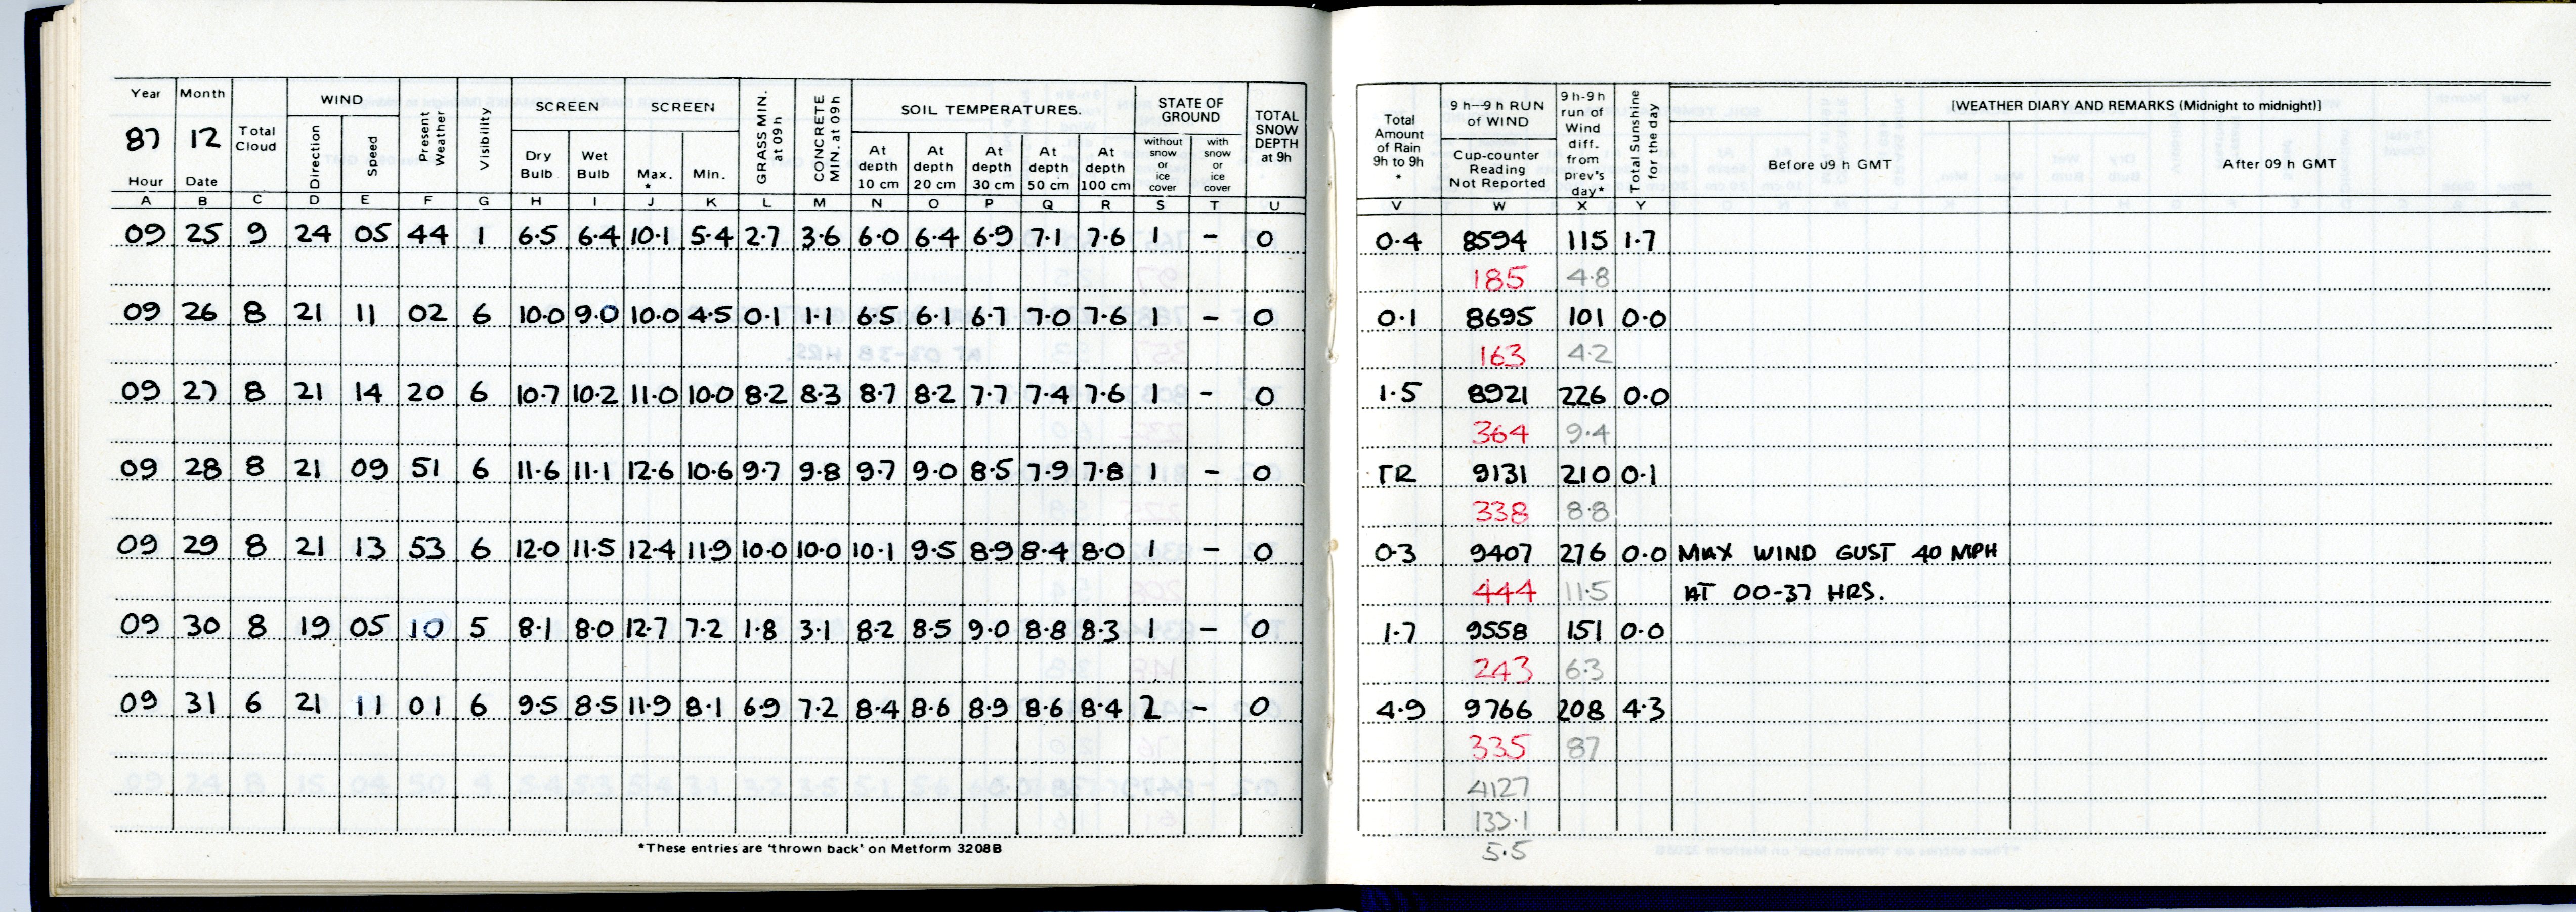 Year Month WIND SCREEN SCREEN SOIL TEMPERATURES. STATE OF GROUND
87 12 Total Cloud Direction Speed Present Weather Visibility Dry Bulb Wet Bulb Max. * Min. GRASS MIN. at 09h CONCRETE MIN. at 09h At depth 10 cm At depth 20 cm At depth 30 cm At depth 50 cm At depth 100 cm without snow or ice cover with snow or ice cover TOTAL SNOW DEPTH at 9h
Hour Date
A B C D E F G H I J K L M N O P Q R S T U
09 25 9 24 05 44 1 6.5 6.4 10.1 5.4 2.7 3.6 6.0 6.4 6.9 7.1 7.6 1 – 0
09 26 8 21 11 02 6 10.0 9.0 10.0 4.5 0.1 1.1 6.5 6.1 6.7 7.0 7.6 1 – 0
09 27 8 21 14 20 6 10.7 10.2 11.0 10.0 8.2 8.3 8.7 8.2 7.7 7.4 7.6 1 – 0
09 28 8 21 09 51 6 11.6 11.1 12.6 10.6 9.7 9.8 9.7 9.0 8.5 7.9 7.8 1 – 0
09 29 8 21 13 53 6 12.0 11.5 12.4 11.9 10.0 10.0 10.1 9.5 8.9 8.4 8.0 1 – 0
09 30 8 19 05 10 5 8.1 8.0 12.7 7.2 1.8 3.1 8.2 8.5 9.0 8.8 8.3 1 – 0
09 31 6 21 11 01 6 9.5 8.5 11.9 8.1 6.9 7.2 8.4 8.6 8.9 8.6 8.4 2 – 0
*These entries are 'thrown back' on Metform 3208B
Total Amount of Rain 9h to 9h * 9 h–9 h RUN of WIND Cup-counter Reading Not Reported 9 h-9 h run of Wind diff. from prev's day* Total Sunshine for the day [WEATHER DIARY AND REMARKS (Midnight to midnight)]
Before 09 h GMT After 09 h GMT
V W X Y
0.4 8594 115 1.7
185 4.8
0.1 8695 101 0.0
163 4.2
1.5 8921 226 0.0
364 9.4
TR 9131 210 0.1
338 8.8
0.3 9407 276 0.0 MAX WIND GUST 40 MPH
444 11.5 AT 00-37 HRS.
1.7 9558 151 0.0
243 6.3
4.9 9766 208 4.3
335 87
4127
133.1
5.5